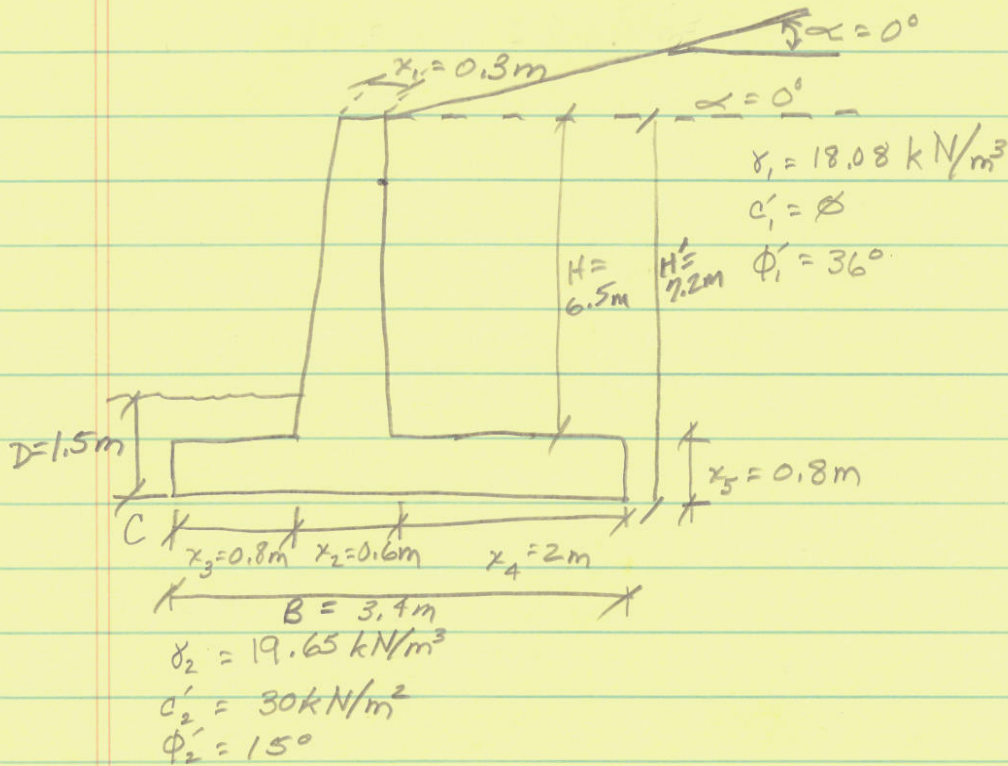 α = 0°
x₁ = 0.3m
α = 0°
γ₁ = 18.08 kN/m³
c₁' = ∅
ϕ₁' = 36°
H =
6.5m
H' =
7.2m
D = 1.5m
x₅ = 0.8m
C
x₃ = 0.8m
x₂ = 0.6m
x₄ = 2m
B = 3.4m
γ₂ = 19.65 kN/m³
c₂' = 30 kN/m²
ϕ₂' = 15°